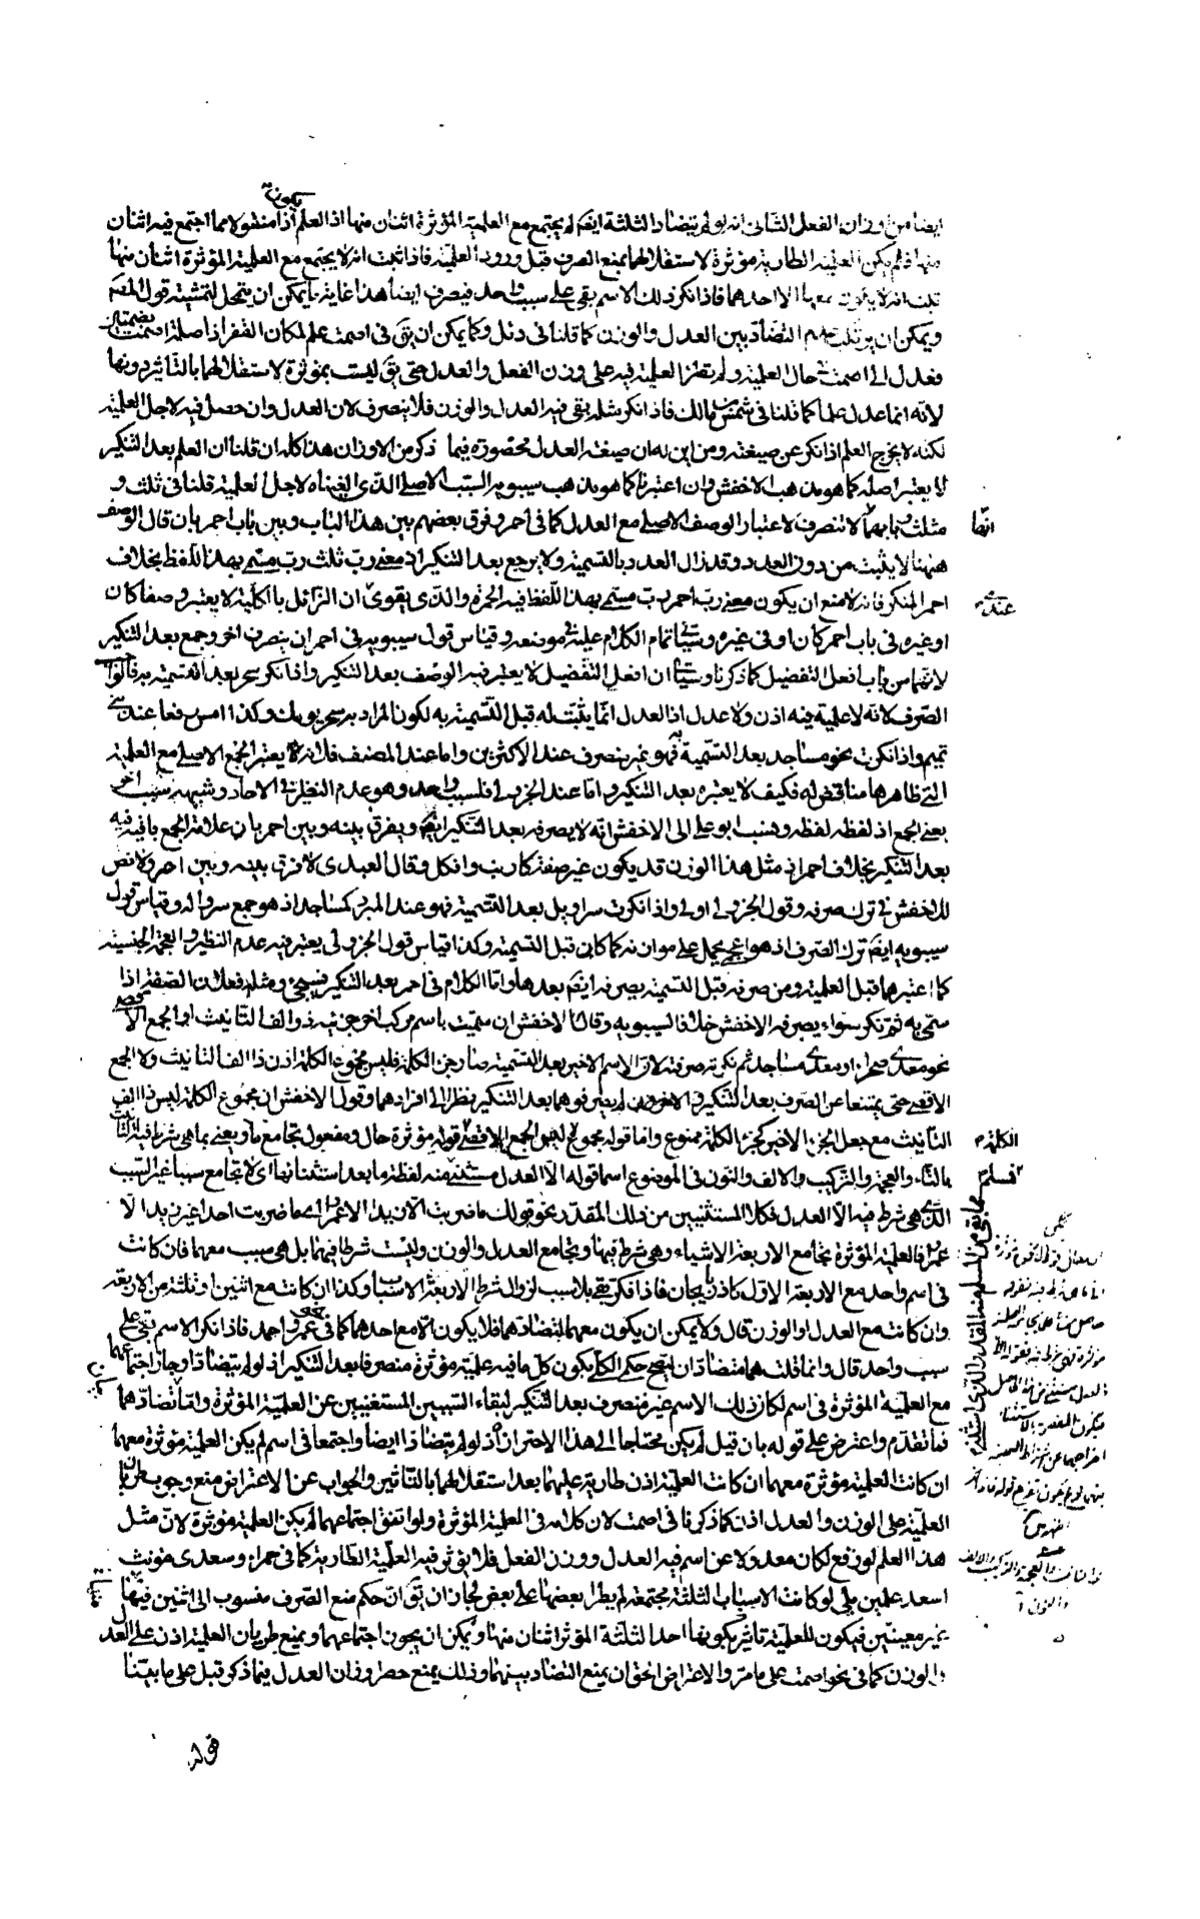 ايضا من اوزان الفعل الثانى انه لو لم يتضاد الثلثة ايضم لم يجتمع مع العلمية المؤثرة اثنان منها اذ العلم اذا منقولا مما اجتمع فيه اثنان
يكون
منها فلم يكن العلمية الطارية مؤثرة لاستقلالهما بمنع الصرف قبل ورود العلمية فاذا ثبت انه لا يجتمع مع العلمية المؤثرة اثنان منها
ثبت انه لا يكون معها الا احدهما فاذا نكر ذلك الاسم بقى على سبب واحد فيصرف ايضا هذا غاية ما يمكن ان يتمحل لتمشية قول المصم
ويمكن ان يرتكب التضاد بين العدل والوزن كما قلنا فى دئل وكما يمكن ان يق فى اصمت علم لمكان القفر اذ اصله اصمت بضمتين
فعدل الى اصمت حال العلمية ولم تطرأ العلمية فيه على وزن الفعل والعدل حتى يق ليست بمؤثرة لاستقلالهما بالتأثير دونها
لانه انما عدل علما كما قلنا فى شمس بن مالك فاذا نكر مثله بقى فيه العدل والوزن فلا ينصرف لان العدل وان حصل فيه لاجل العلمية
لكنه لا يخرج العلم اذا نكر عن صيغته ومن اين له ان صيغة العدل محصورة فيما ذكر من الاوزان هذا كله ان قلنا ان العلم بعد التنكير
لا يعتبر اصله كما هو مذهب الاخفش وان اعتبرنا كما هو مذهب سيبويه السبب الاصلى الذى الغيناه لاجل العلمية قلنا فى ثلث و
مثلث وبابهما لا تنصرف لاعتبار الوصف الاصلى مع العدل كما فى احمر وفرق بعضهم بين هذا الباب وبين باب احمر بان قال الوصف
هيهنا لا يثبت من دون العدد وقد زال العدد بالتسمية ولا يرجع بعد التنكير اذ معنى رب ثلث رب مسمى بهذا اللفظ بخلاف
احمر المنكر فانه لا منع ان يكون معنى رب احمر رب مسمى بهذا اللفظ فيه الحمرة والذى يقوى ان الزائل بالكلية لا يعتبر وصفا كان
او غيره فى باب احمر كان او فى غيره وسيأتى تمام الكلام عليه فى موضعه وقياس قول سيبويه فى اخر ان ينصرف اخر وجمع بعد التنكير
لانهما من باب افعل التفضيل كما ذكرنا وسيأتى ان افعل التفضيل لا يعتبر فيه الوصف بعد التنكير واذا نكر سحر بعد التسمية به فالواجب
الصرف لانه لا علمية فيه اذن ولا عدل اذ العدل انما يثبت له قبل التسمية به لكون المراد به سحر يومك وكذا امس رفعا عند بنى
تميم واذا نكرت نحو مساجد بعد التسمية به فهو غير منصرف عند الاكثرين واما عند المصنف فلانه لا يعتبر الجمع الاصلى مع العلمية
التى ظاهرها مناقض له فكيف لا يعتبره بعد التنكير واما عند الجزولى فلسبب واحد وهو عدم النظير فى الاحاد وشبهه بسبب اخر
يعنى الجمع اذ لفظه لفظه وينسب ابو على الى الاخفش انه لا يصرفه بعد التنكير ايضم ويفرق بينه وبين احمر بان علامة الجمع باقية فيه
بعد التنكير بخلاف احمر اذ مثل هذا الوزن قد يكون غير صفة كارنب وافكل وقال العبدى لا فرق بينه وبين احمر ولا نص
للاخفش فى ترك صرفه وقول الجزولى اولى واذا نكرت سراويل بعد التسمية فهو عند المبرد كمساجد اذ هو جمع سروالة وقياس قول
سيبويه ايضم ترك الصرف اذ هو اعجمى حمل على موازنه كما كان قبل التسمية وكذا قياس قول الجزولى يعتبر فيه عدم النظير والعجمة الجنسية
كما اعتبرهما قبل العلمية ومن صرفه قبل التسمية يصرفه ايضم بعدها واما الكلام فى احمر بعد التنكير فسيجئ ومثله فعلان الصفة اذا
سمى به ثم نكر سواء يصرفه الاخفش خلافا لسيبويه وقال الاخفش ان سميت باسم مركب اخر جزئيه ذو الف التانيث او الجمع الاقصى
نحو معدى صحراء او معدى مساجد ثم نكرته صرفته لان الاسم الاخير بعد التسمية صار جزء الكلمة فليس مجموع الكلمة اذن ذا الف التانيث ولا الجمع
الاقصى حتى يمتنعا عن الصرف بعد التنكير والاخرون لم يصرفوهما بعد التنكير نظرا الى افرادهما وقول الاخفش ان مجموع الكلمة ليس ذا الف
التانيث مع جعل الجزء الاخير كجزء الكلمة ممنوع واما قوله مجموع ليس الجمع الاقصى فمسلم قوله مؤثرة حال ومفعول تجامع ما ويعنى بما هى شرط فيه التانيث
بالتاء والعجمة والتركيب والالف والنون فى الموضوع اسما قوله الا العدل مستثنى منه لفظة ما بعد استثنائها اى لا تجامع سببا غير السبب
الذى هى شرط فيه الا العدل فكلا المستثنيين من ذلك المقدر نحو قولك ما ضربت الا زيدا الا عمرا اى ما ضربت احدا غير زيد الا
عمرا فالعلمية المؤثرة تجامع الاربعة الاشياء وهى شرط فيها وتجامع العدل والوزن وليست شرطا فيهما بل هى سبب معهما فان كانت
فى اسم واحد مع الاربعة الاول كاذربيجان فاذا نكر بقى بلا سبب لزوال شرط الاربعة الاسباب وكذا ان كانت مع اثنين او ثلثة من الاربعة
وان كانت مع العدل او الوزن قال ولا يمكن ان يكون معهما لتضادهما فلا يكون الا مع احدهما كما فى نحو عمر واحمد فاذا نكر الاسم بقى على
سبب واحد قال وانما قلت هما متضادان ليصح حكم الكلى بكون كل ما فيه علمية مؤثرة منصرفا بعد التنكير اذ لو لم يتضادا وجاز اجتماعهما
مع العلمية المؤثرة فى اسم لكان ذلك الاسم غير منصرف بعد التنكير لبقاء السببين المستغنيين عن العلمية المؤثرة واما تضادهما
فما تقدم واعترض على قوله بان قيل لم يكن محتاجا الى هذا الاحتراز اذ لو لم يتضادا ايضا واجتمعا فى اسم لم يكن العلمية مؤثرة معهما
ان كانت العلمية مؤثرة معهما ان كانت العلمية اذن طارية عليهما بعد استقلالهما بالتأثير والجواب عن الاعتراض منع وجوب طريان
العلمية على الوزن والعدل اذن كما ذكرنا فى اصمت لان كلامه فى العلمية المؤثرة ولو اتفق اجتماعهما لم يكن العلمية مؤثرة لان مثل
هذا العلم لو وقع لكان معدولا عن اسم فيه العدل ووزن الفعل فلا يؤثر فيه العلمية الطارية كما فى حمراء وسعدى مؤنث
اسعد علمين بلى لو كانت الاسباب الثلثة مجتمعة لم يطرأ بعضها على بعض لجاز ان يق ان حكم منع الصرف منسوب الى اثنين فيها
غير معينين فيكون للعلمية تأثير بكونها احد الثلثة المؤثر اثنان منها ويمكن ان يجوز اجتماعهما ويمنع طريان العلمية اذن على العدل
والوزن كما فى نحو اصمت على ما مر والاعتراض الحق ان يمنع التضاد بينهما وذلك بمنع حصر اوزان العدل فيما ذكر قبل على ما بينا
ايضا
عنده
الكلمة
فمسلم
قوله